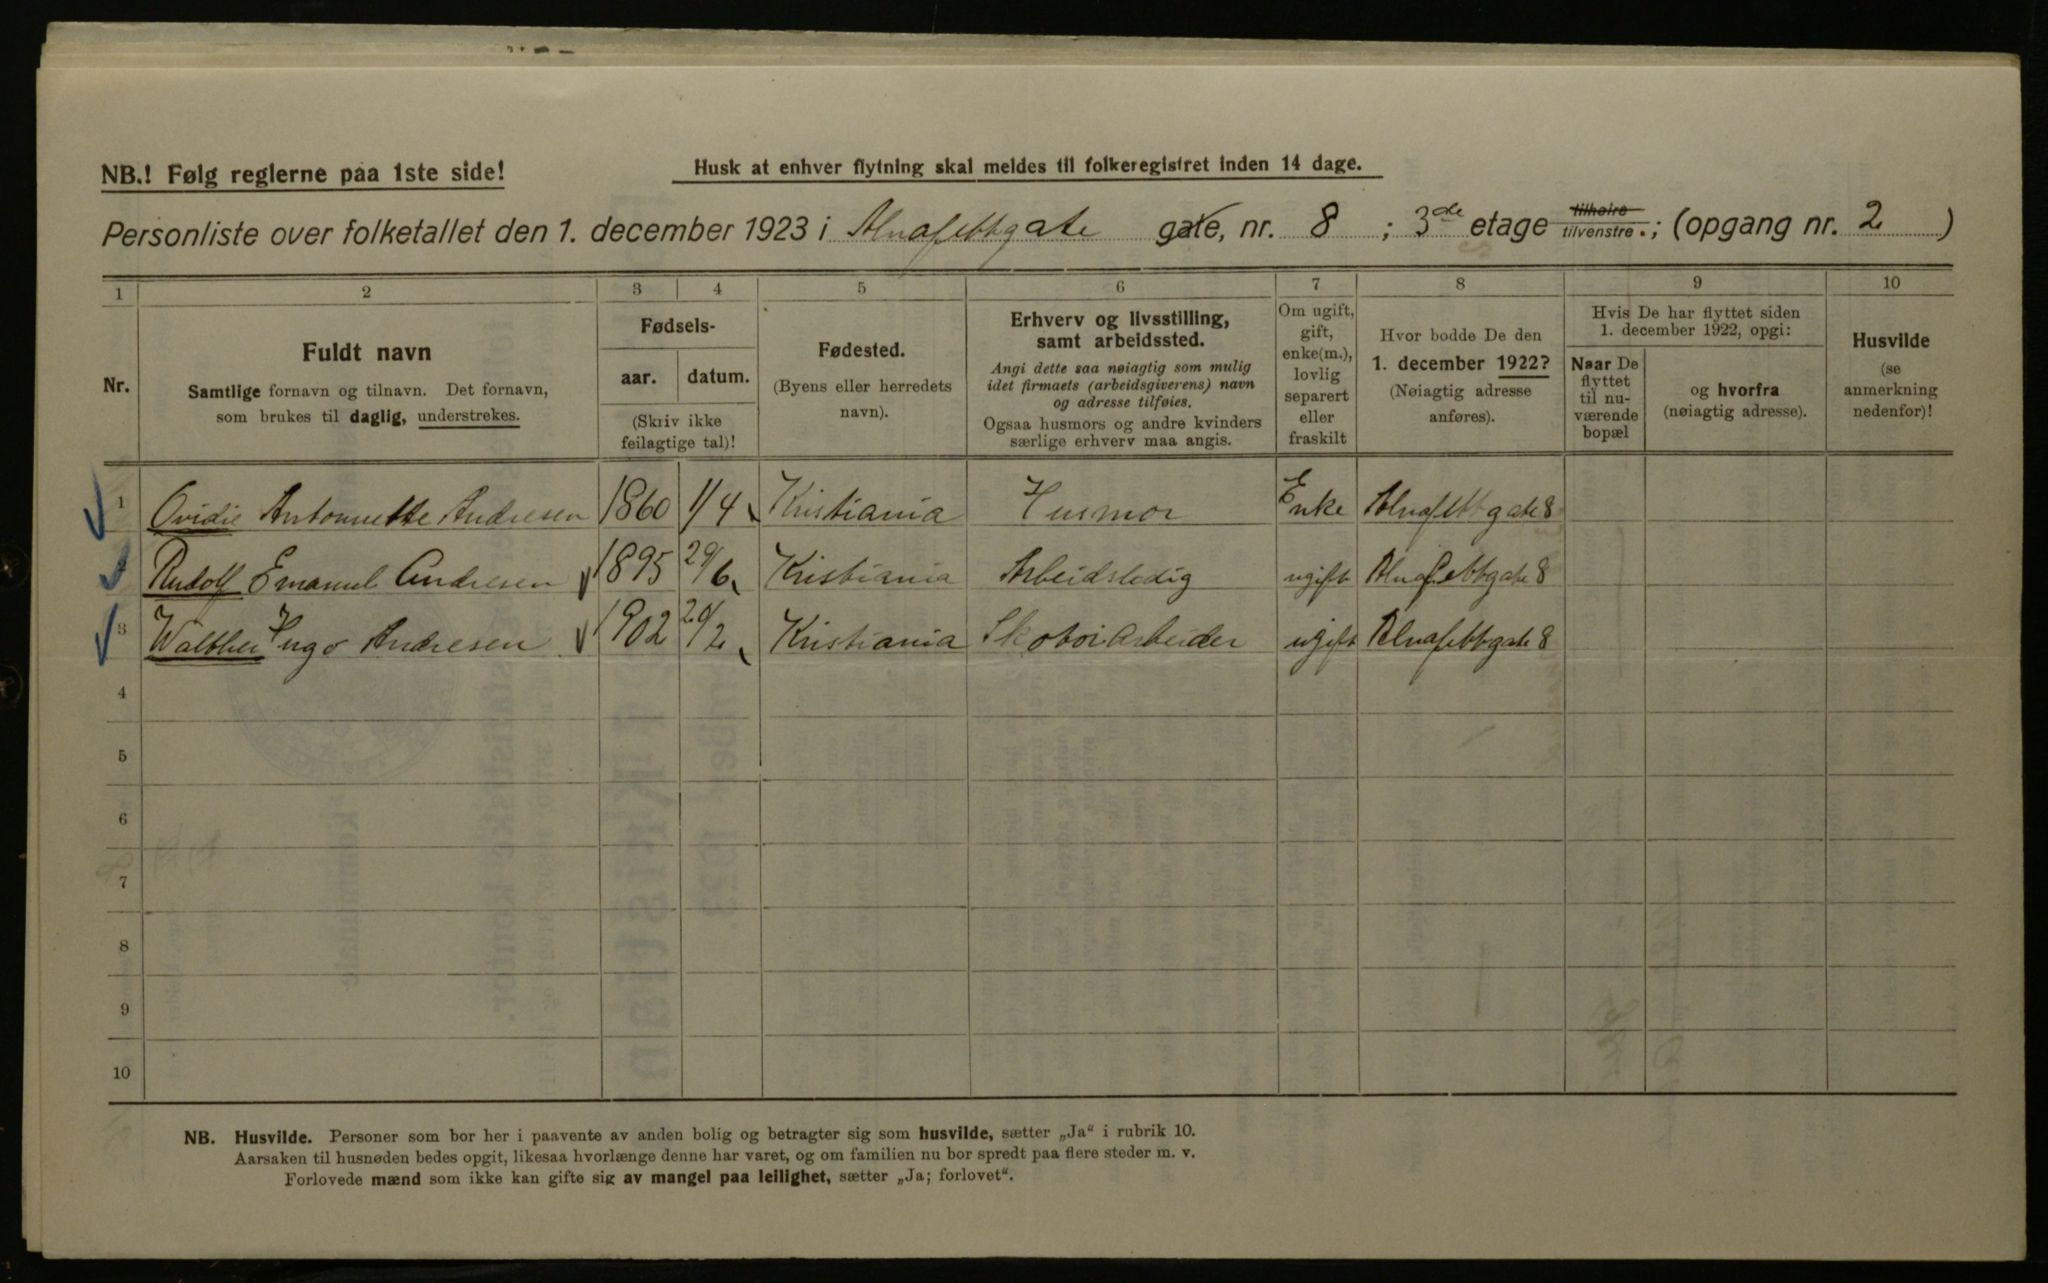 NB.! Følg reglerne paa 1ste side!
Husk at enhver flytning skal meldes til folkeregistret inden 14 dage.
Personliste over folketallet den 1. december 1923 i Alnafettgate gate, nr. 8 ; 3de etage tilhøire tilvenstre. ; (opgang nr. 2 )
1 2 3 4 5 6 7 8 9 10
Nr.
Fuldt navn
Samtlige fornavn og tilnavn. Det fornavn,
som brukes til daglig, understrekes.
Fødsels-
aar. datum.
(Skriv ikke
feilagtige tal)!
Fødested.
(Byens eller herredets
navn).
Erhverv og livsstilling,
samt arbeidssted.
Angi dette saa nøiagtig som mulig
idet firmaets (arbeidsgiverens) navn
og adresse tilføies.
Ogsaa husmors og andre kvinders
særlige erhverv maa angis.
Om ugift,
gift,
enke(m.),
lovlig
separert
eller
fraskilt
Hvor bodde De den
1. december 1922?
(Nøiagtig adresse
anføres).
Hvis De har flyttet siden
1. december 1922, opgi:
Naar De
flyttet
til nu-
værende
bopæl
og hvorfra
(nøiagtig adresse).
Husvilde
(se
anmerkning
nedenfor)!
1 Ovidie Antonnette Andresen 1860 1/4 Kristiania Husmor Enke Alnafettgate 8
Rudolf Emanuel Andresen 1895 29/6 Kristiania Arbeidsledig ugift Alnafettgate 8
3 Walther Hugo Andresen 1902 /2 Kristiania Skotøiarbeider ugift Alnafettgate 8
4
5
6
7
8
9
10
NB. Husvilde. Personer som bor her i paavente av anden bolig og betragter sig som husvilde, sætter „Ja“ i rubrik 10.
Aarsaken til husnøden bedes opgit, likesaa hvorlænge denne har varet, og om familien nu bor spredt paa flere steder m. v.
Forlovede mænd som ikke kan gifte sig av mangel paa leilighet, sætter „Ja; forlovet“.